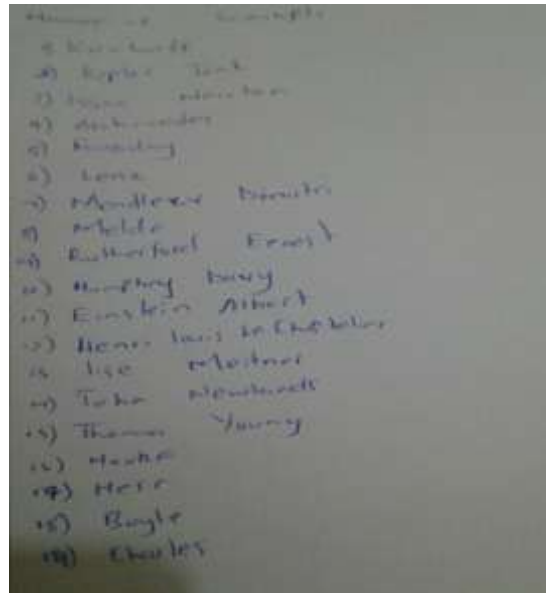 3) Isaac Newton
4) Archimedes
5) Faraday
6) Lenz
7) Mendleev Dimitri
8) Melde
9) Rutherford Ernest
10) Humphrey Davy
11) Einstein Albert
12) Henri Louis Le Chatelier
13 lise Meitner
14) John Newlands
15) Thomas Young
16) Hooke
17) Hess
18) Boyle
19) Charles